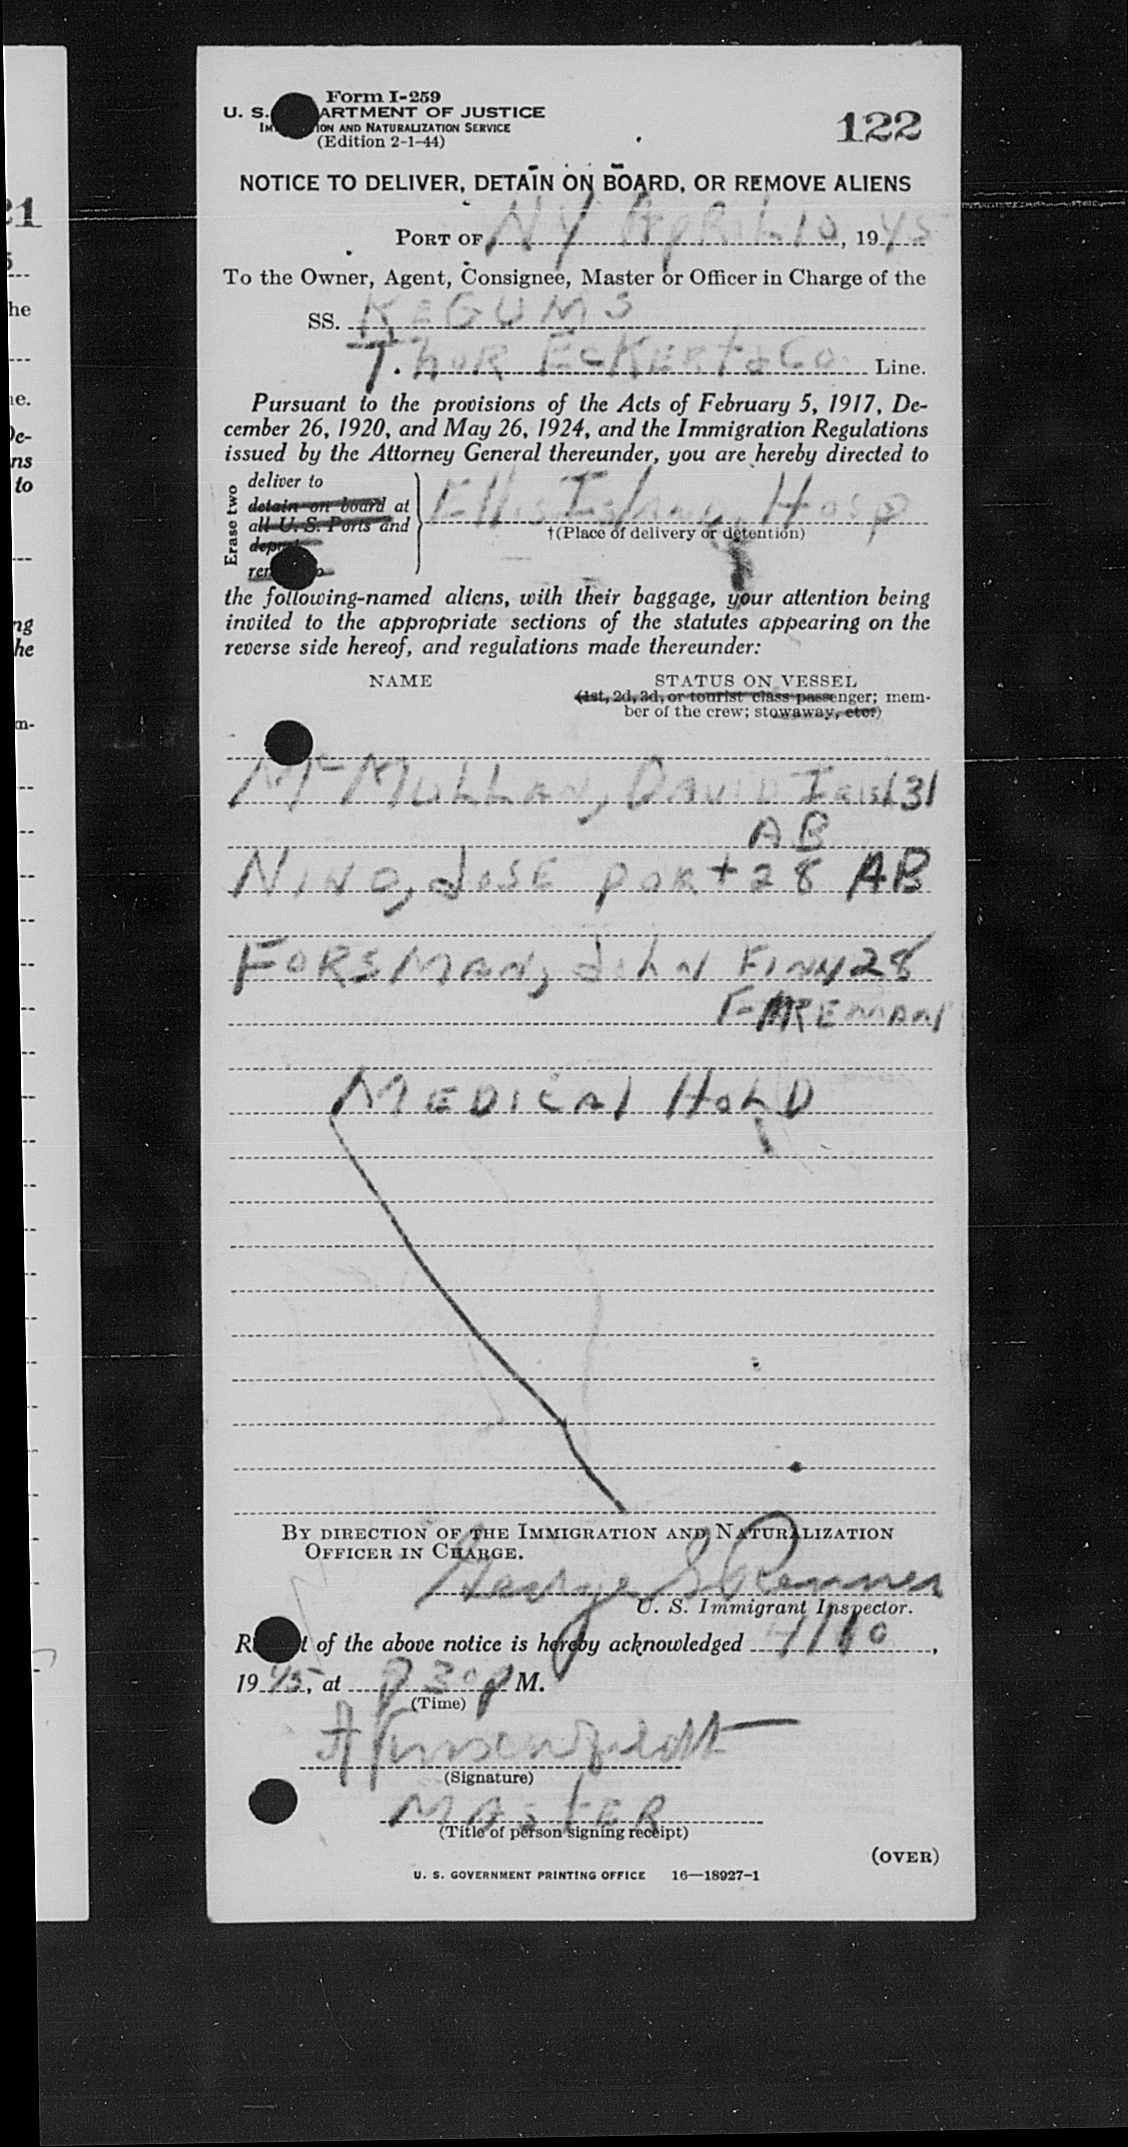 21
he
e.
De-
ns
to
ng
he
m-
Form I-259
U. S. ARTMENT OF JUSTICE
ION AND NATURALIZATION SERVICE
(Edition 2-1-44)
122
NOTICE TO DELIVER, DETAIN ON BOARD, OR REMOVE ALIENS
PORT OF NY April 10, 1945
To the Owner, Agent, Consignee, Master or Officer in Charge of the
SS. KEGUMS
Thor Eckert & Co. Line.
Pursuant to the provisions of the Acts of February 5, 1917, De-
cember 26, 1920, and May 26, 1924, and the Immigration Regulations
issued by the Attorney General thereunder, you are hereby directed to
Erase two
deliver to
detain on board at
all U. S. Ports and
Ellis Island Hosp
†(Place of delivery or detention)
the following-named aliens, with their baggage, your attention being
invited to the appropriate sections of the statutes appearing on the
reverse side hereof, and regulations made thereunder:
NAME STATUS ON VESSEL
(1st, 2d, 3d, or tourist class passenger; mem-
ber of the crew; stowaway, etc.)
McMULLAN, DAVID Irish 31
AB
NINO, JOSE PORT 28 AB
FORSMAN, John FINN 28
FIREMAN
MEDICAL HOLD
BY DIRECTION OF THE IMMIGRATION AND NATURALIZATION
OFFICER IN CHARGE.
George S
U. S. Immigrant Inspector.
of the above notice is hereby acknowledged 4/10,
1945, at 30 P M.
(Time)
(Signature)
MASTER
(Title of person signing receipt)
(OVER)
U. S. GOVERNMENT PRINTING OFFICE 16—18927-1